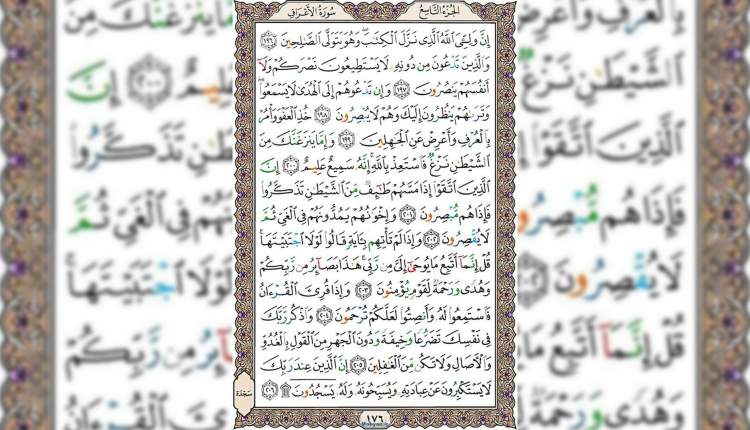 سُورَةُ الأَعْرَافِ
الجُزْءُ التَّاسِعُ
إِنَّ وَلِـِّۧيَ ٱللَّهُ ٱلَّذِي نَزَّلَ ٱلْكِتَٰبَۖ وَهُوَ يَتَوَلَّى ٱلصَّٰلِحِينَ ١٩٦
وَٱلَّذِينَ تَدْعُونَ مِن دُونِهِۦ لَا يَسْتَطِيعُونَ نَصْرَكُمْ وَلَآ
أَنفُسَهُمْ يَنصُرُونَ ١٩٧ وَإِن تَدْعُوهُمْ إِلَى ٱلْهُدَىٰ لَا يَسْمَعُواۖ
وَتَرَىٰهُمْ يَنظُرُونَ إِلَيْكَ وَهُمْ لَا يُبْصِرُونَ ١٩٨ خُذِ ٱلْعَفْوَ وَأْمُرْ
بِٱلْعُرْفِ وَأَعْرِضْ عَنِ ٱلْجَٰهِلِينَ ١٩٩ وَإِمَّا يَنزَغَنَّكَ مِنَ
ٱلشَّيْطَٰنِ نَزْغٌ فَٱسْتَعِذْ بِٱللَّهِۚ إِنَّهُۥ سَمِيعٌ عَلِيمٌ ٢٠٠ إِنَّ
ٱلَّذِينَ ٱتَّقَوْا۟ إِذَا مَسَّهُمْ طَٰٓئِفٌ مِّنَ ٱلشَّيْطَٰنِ تَذَكَّرُوا۟
فَإِذَا هُم مُّبْصِرُونَ ٢٠١ وَإِخْوَٰنُهُمْ يَمُدُّونَهُمْ فِي ٱلْغَيِّ ثُمَّ
لَا يُقْصِرُونَ ٢٠٢ وَإِذَا لَمْ تَأْتِهِم بِـَٔايَةٍ قَالُوا۟ لَوْلَا ٱجْتَبَيْتَهَاۚ
قُلْ إِنَّمَآ أَتَّبِعُ مَا يُوحَىٰٓ إِلَيَّ مِن رَّبِّيۚ هَٰذَا بَصَآئِرُ مِن رَّبِّكُمْ
وَهُدًى وَرَحْمَةٌ لِّقَوْمٍ يُؤْمِنُونَ ٢٠٣ وَإِذَا قُرِئَ ٱلْقُرْءَانُ
فَٱسْتَمِعُوا۟ لَهُۥ وَأَنصِتُوا۟ لَعَلَّكُمْ تُرْحَمُونَ ٢٠٤ وَٱذْكُر رَّبَّكَ
فِي نَفْسِكَ تَضَرُّعًا وَخِيفَةً وَدُونَ ٱلْجَهْرِ مِنَ ٱلْقَوْلِ بِٱلْغُدُوِّ
وَٱلْءَاصَالِ وَلَا تَكُن مِّنَ ٱلْغَٰفِلِينَ ٢٠٥ إِنَّ ٱلَّذِينَ عِندَ رَبِّكَ
لَا يَسْتَكْبِرُونَ عَنْ عِبَادَتِهِۦ وَيُسَبِّحُونَهُۥ وَلَهُۥ يَسْجُدُونَ ۩ ٢٠٦
سَجْدَة
١٧٦